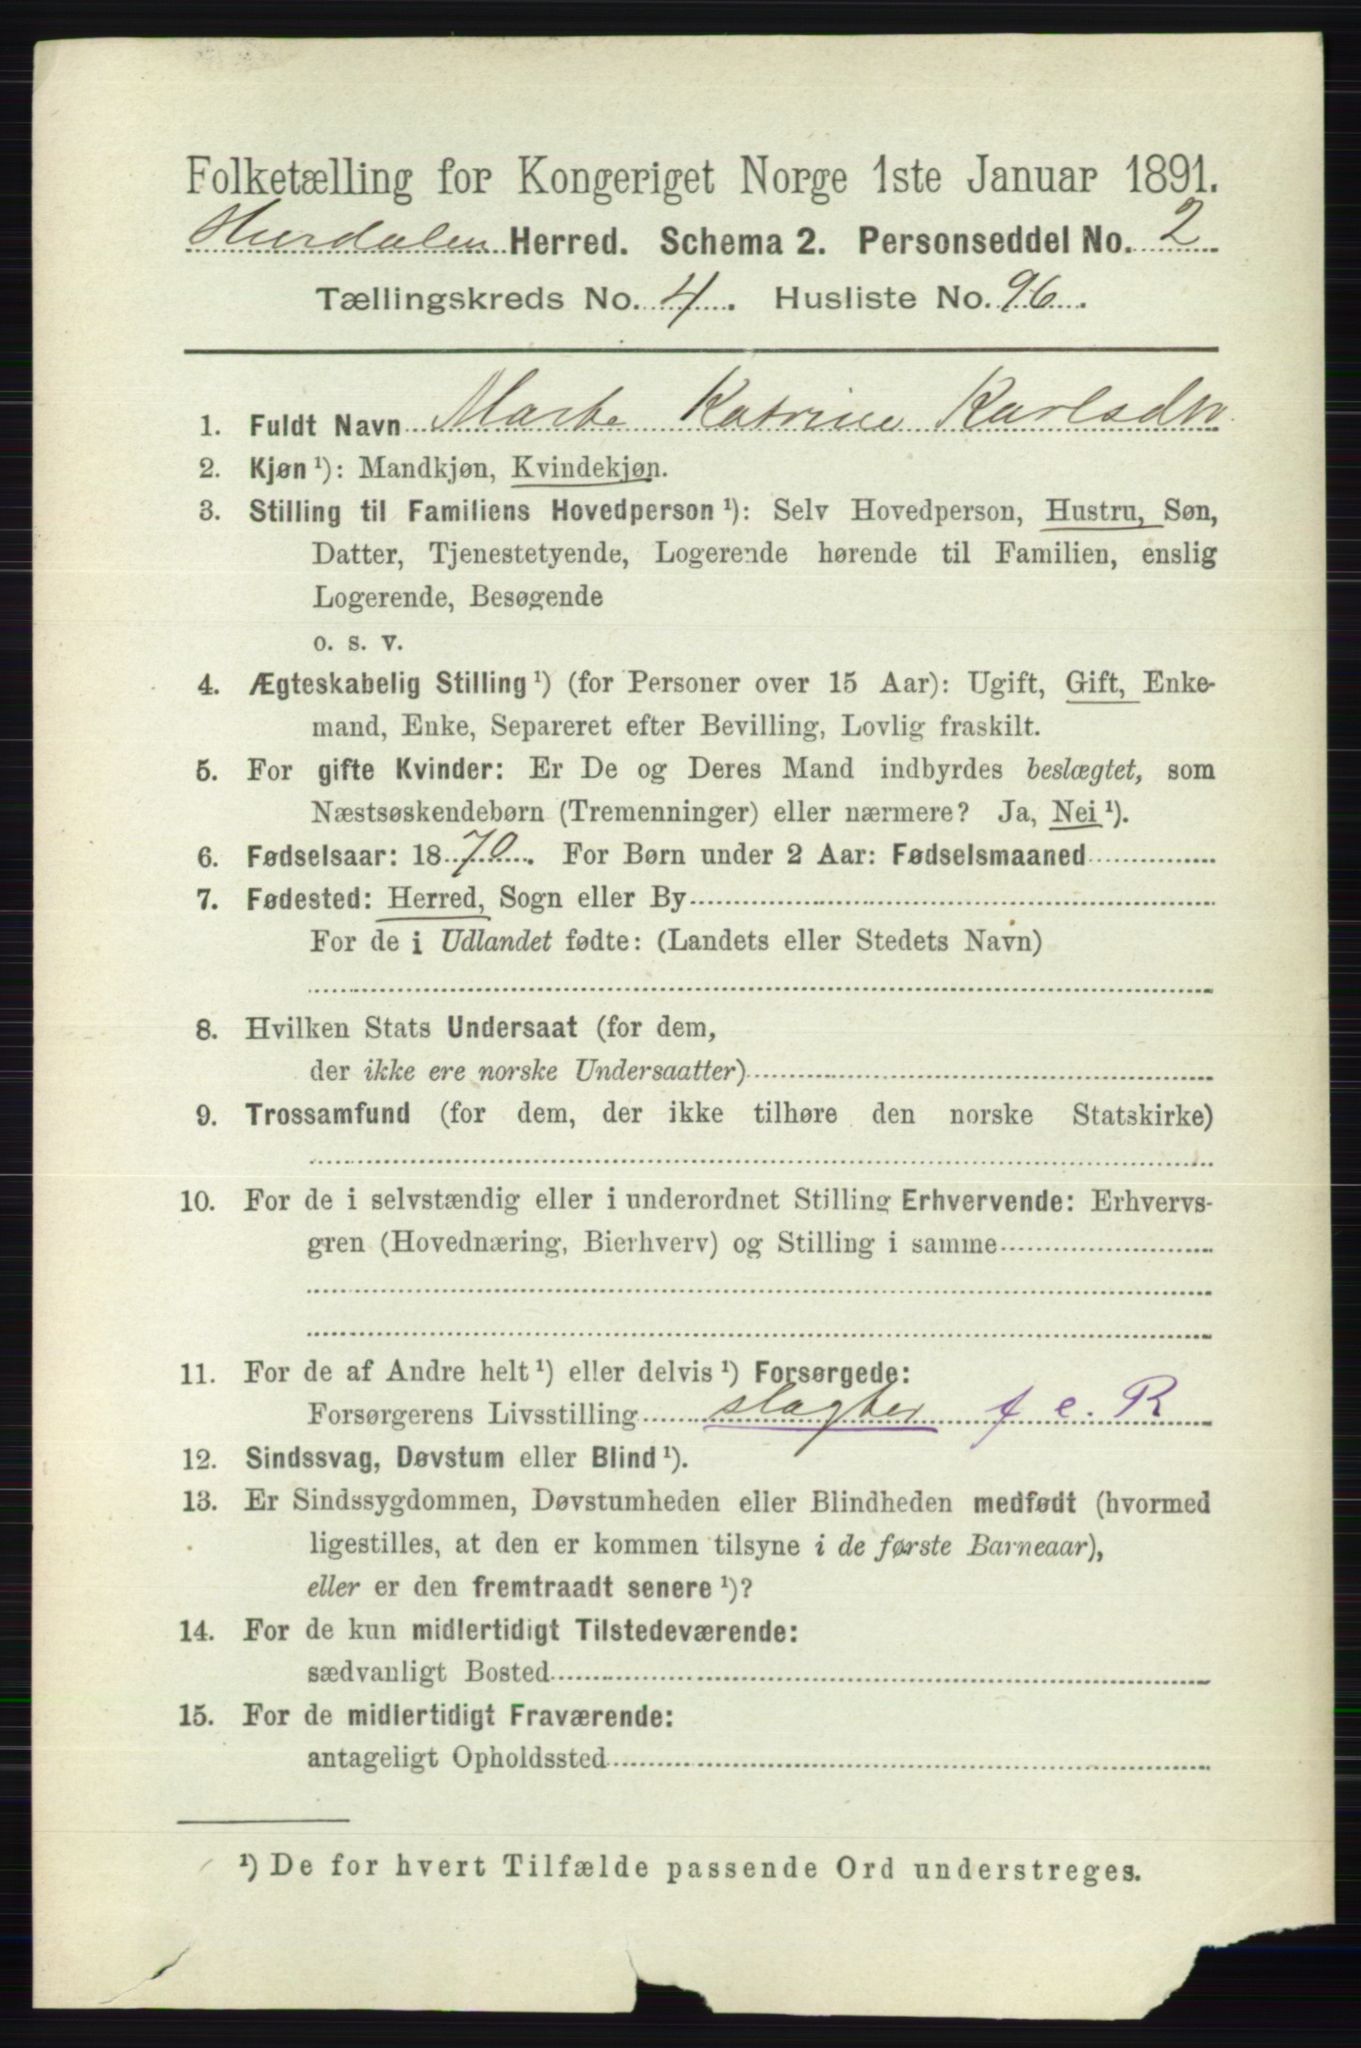 Folketælling for Kongeriget Norge 1ste Januar 1891.
Hurdalen Herred. Schema 2. Personseddel No. 2
Tællingskreds No. 4. Husliste No. 96.
1. Fuldt Navn Marte Katrine Karlsdtr
2. Kjøn ¹): Mandkjøn, Kvindekjøn.
3. Stilling til Familiens Hovedperson ¹): Selv Hovedperson, Hustru, Søn,
Datter, Tjenestetyende, Logerende hørende til Familien, enslig
Logerende, Besøgende
o. s. v.
4. Ægteskabelig Stilling ¹) (for Personer over 15 Aar): Ugift, Gift, Enke-
mand, Enke, Separeret efter Bevilling, Lovlig fraskilt.
5. For gifte Kvinder: Er De og Deres Mand indbyrdes beslægtet, som
Næstsøskendebørn (Tremenninger) eller nærmere? Ja, Nei ¹).
6. Fødselsaar: 1870. For Børn under 2 Aar: Fødselsmaaned
7. Fødested: Herred, Sogn eller By
For de i Udlandet fødte: (Landets eller Stedets Navn)
8. Hvilken Stats Undersaat (for dem,
der ikke ere norske Undersaatter)
9. Trossamfund (for dem, der ikke tilhøre den norske Statskirke)
10. For de i selvstændig eller i underordnet Stilling Erhvervende: Erhvervs-
gren (Hovednæring, Bierhverv) og Stilling i samme
11. For de af Andre helt ¹) eller delvis ¹) Forsørgede:
Forsørgerens Livsstilling slagter f e. R
12. Sindssvag, Døvstum eller Blind ¹).
13. Er Sindssygdommen, Døvstumheden eller Blindheden medfødt (hvormed
ligestilles, at den er kommen tilsyne i de første Barneaar),
eller er den fremtraadt senere ¹)?
14. For de kun midlertidigt Tilstedeværende:
sædvanligt Bosted
15. For de midlertidigt Fraværende:
antageligt Opholdssted
¹) De for hvert Tilfælde passende Ord understreges.